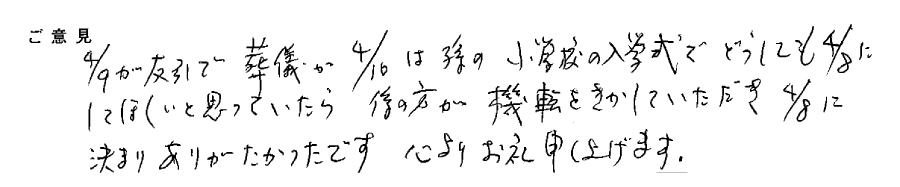 ご意見
4/9が友引で 葬儀が 4/10は孫の 小学校の入学式で どうしても4/8に
してほしいと思っていたら 係の方が 機転をきかしていただき 4/8に
決まり ありがたかったです 心より お礼申し上げます.